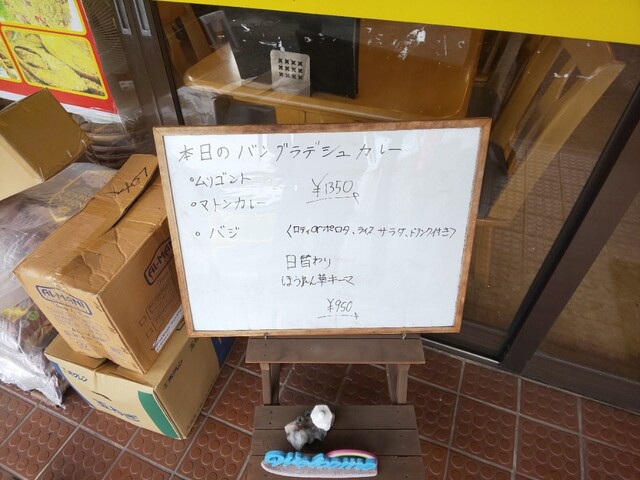 本日のバングラデシュカレー
・ムリゴント
・マトンカレー
¥1350
・バジ
〈ロティorポロタ、ライス サラダ、ドリンク付き〉
日替わり
ほうれん草キーマ
¥950
AL-MANI
AL-MANI